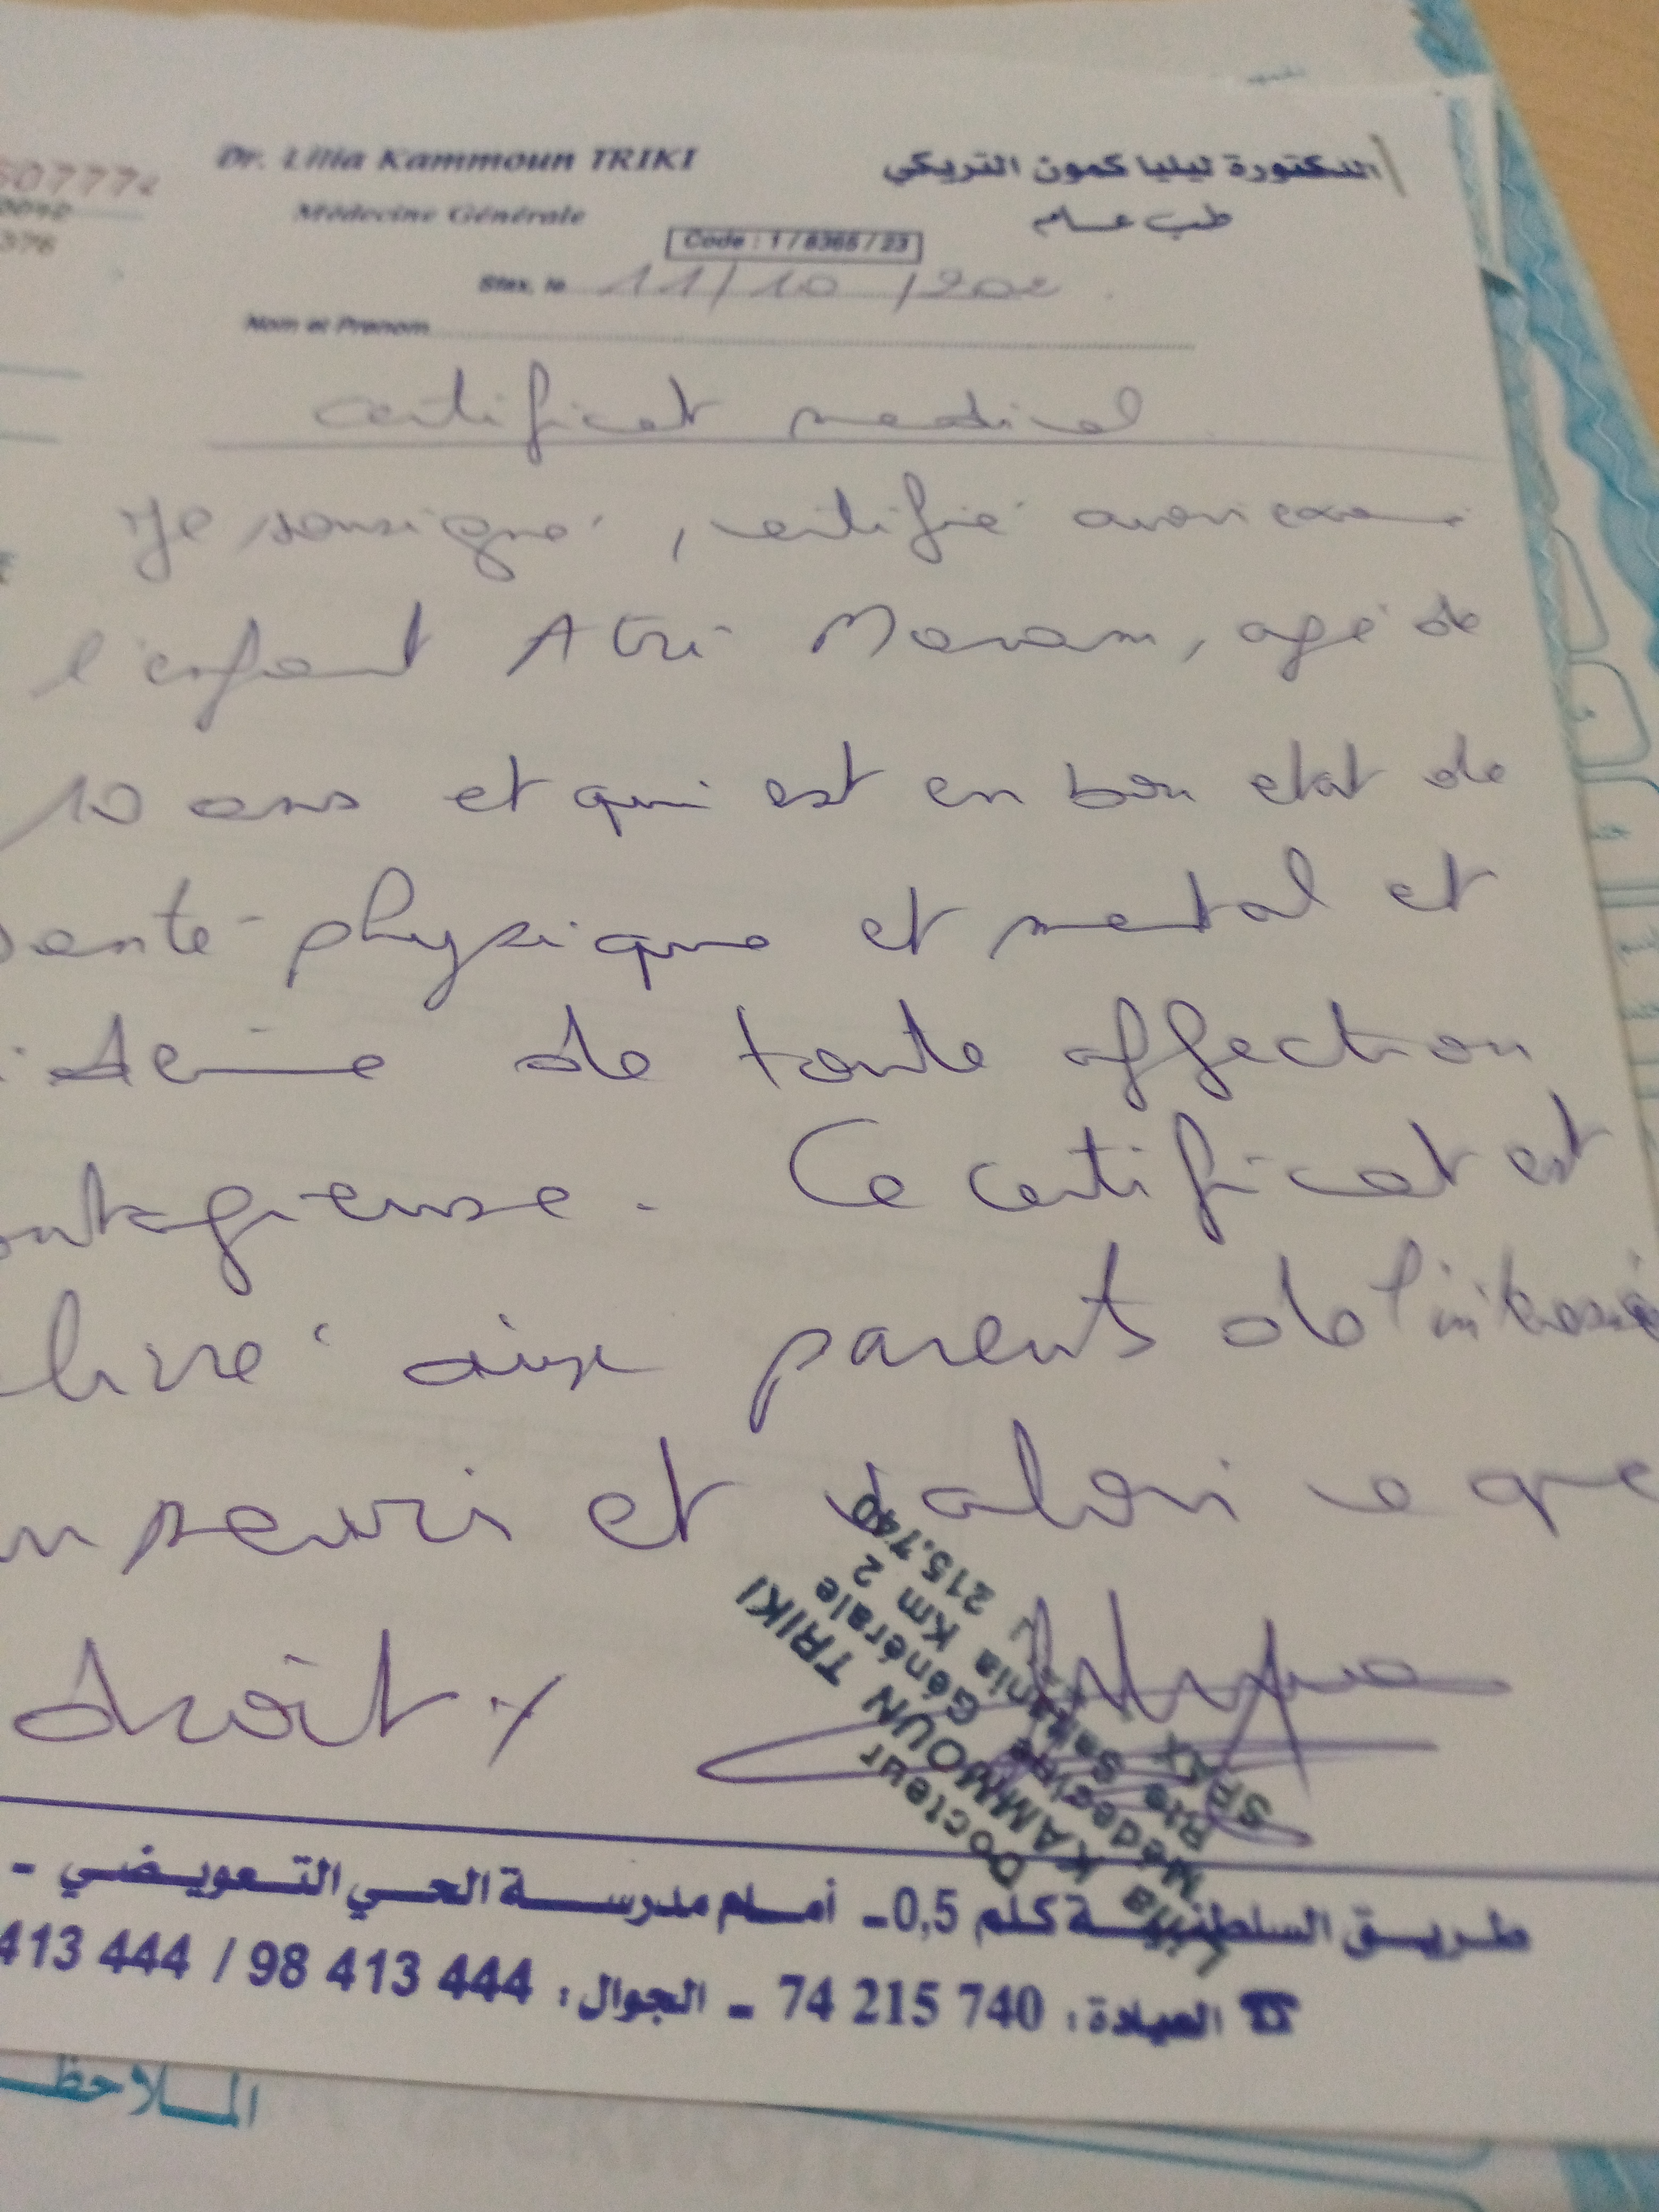 Dr. Lilia Kammoun TRIKI
الدكتورة ليليا كمون التريكي
Médecine Générale
طب عام
Code : 1 / 8365 / 23
Sfax, le 11/10/202
Nom et Prénom
certificat medical
Je sousigné, certifie avoir
l'enfant Atri Maram, agé de
10 ans et qui est en bon etat de
santé physique et mental et
de toute affection
ontagieuse. Ce certificat est
livré aux parents de l'intéressé
servir et valoir ce que
droit
Docteur
Lilia KAMMOUN TRIKI
Médecine Générale
Rte Saltania Km 2
SFAX 215.740
طريق السلطنية كلم 0,5 - أمام مدرسة الحي التعويضي -
☎ العيادة: 740 215 74 - الجوال: 444 413 98 / 444 413
الملاحظ